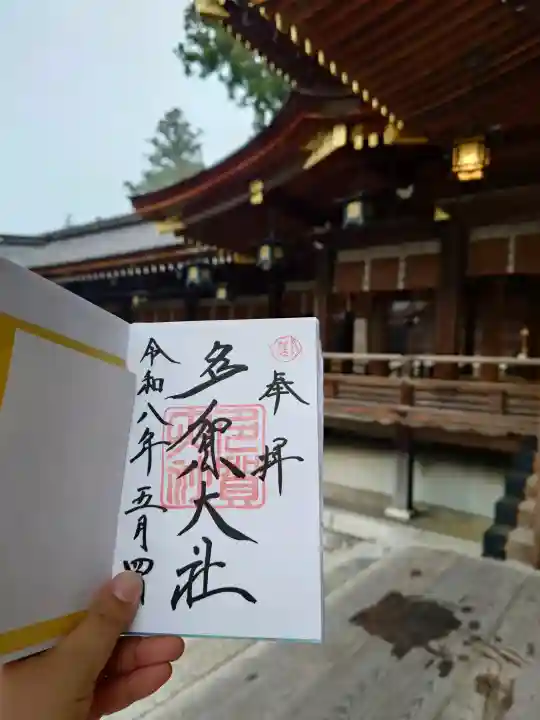 奉拝
多賀大社
令和八年五月四日
多賀大社